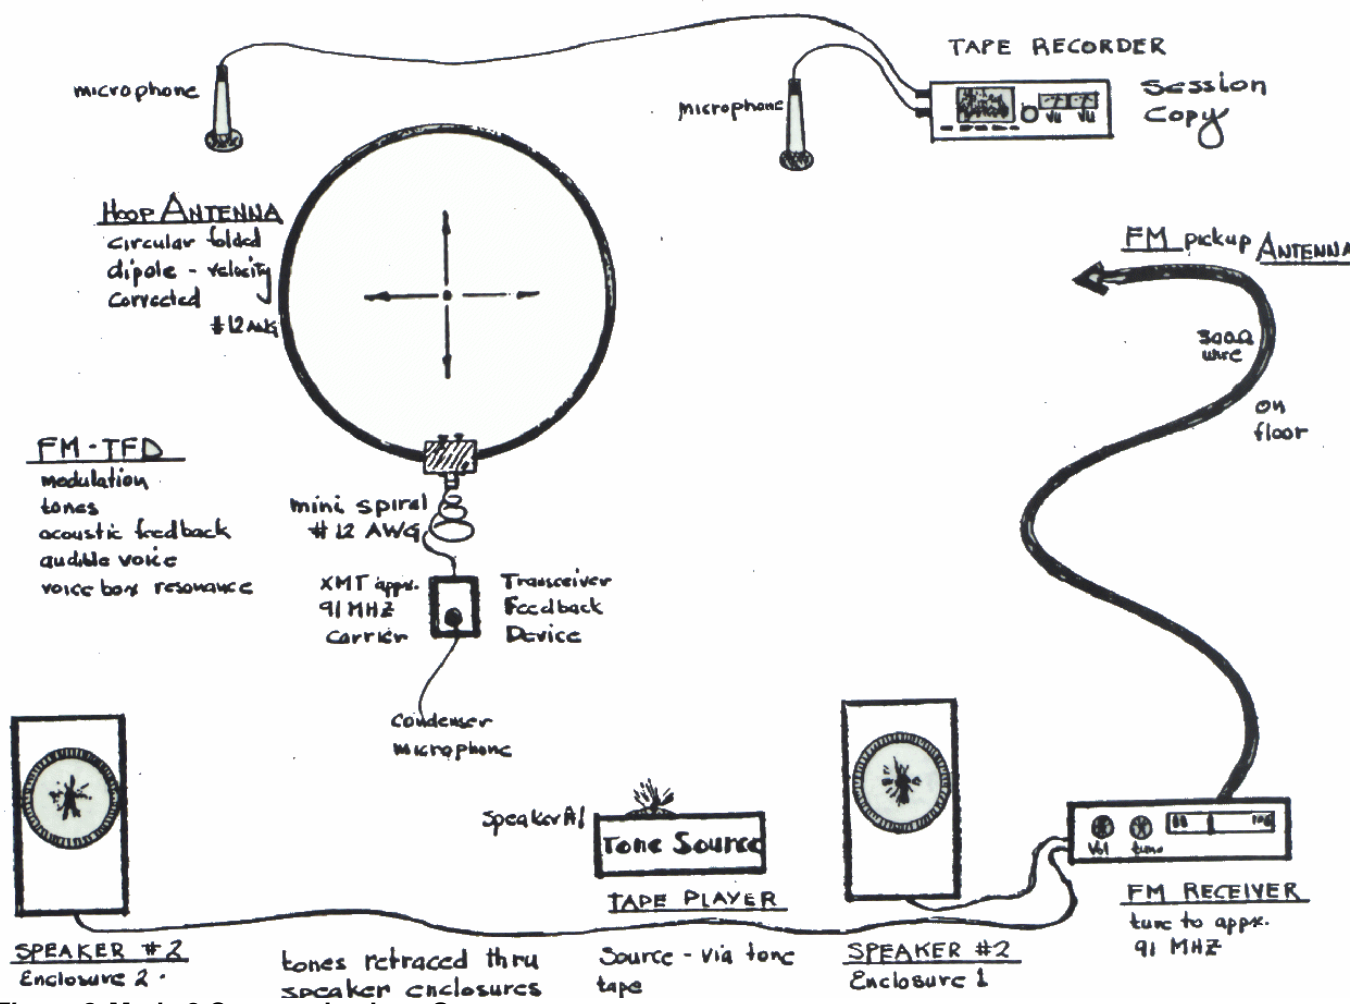 TAPE RECORDER
Session
Copy
microphone
microphone
Vu Vu
HOOP ANTENNA
circular folded
dipole - velocity
corrected
#12 AWG
FM pickup ANTENNA
300Ω
wire
on
floor
FM-TFD
modulation
tones
acoustic feedback
audible voice
voice box resonance
mini spiral
#12 AWG
XMT appx.
91 MHZ
carrier
Transceiver
Feedback
Device
Condenser
microphone
Speaker A1
Tone Source
TAPE PLAYER
Source - via tone
tape
88
Vol tune
FM RECEIVER
tune to appx.
91 MHZ
SPEAKER #2
Enclosure 2
tones retraced thru
speaker enclosures
SPEAKER #2
Enclosure 1